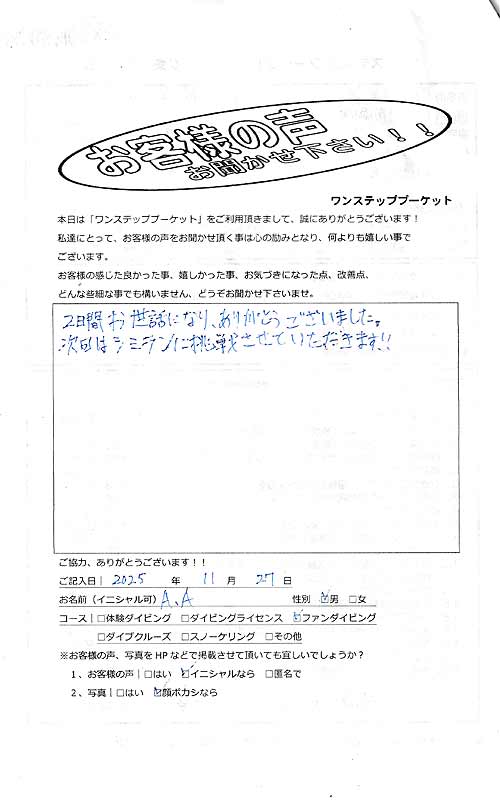 お客様の声
お聞かせ下さい！！
ワンステッププーケット
本日は「ワンステッププーケット」をご利用頂きまして、誠にありがとうございます！
私達にとって、お客様の声をお聞かせ頂く事は心の励みとなり、何よりも嬉しい事で
ございます。
お客様の感じた良かった事、嬉しかった事、お気づきになった点、改善点、
どんな些細な事でも構いません、どうぞお聞かせ下さいませ。
2日間お世話になり、ありがとうございました。
次回はシミランに挑戦させていただきます!!
ご協力、ありがとうございます！！
ご記入日｜ 2025 年 11 月 27 日
お名前（イニシャル可） A.A 性別 ☑男 □女
コース｜□体験ダイビング □ダイビングライセンス ☑ファンダイビング
□ダイブクルーズ □スノーケリング □その他
※お客様の声、写真をHPなどで掲載させて頂いても宜しいでしょうか？
1、お客様の声｜□はい ☑イニシャルなら □匿名で
2、写真｜□はい ☑顔ボカシなら